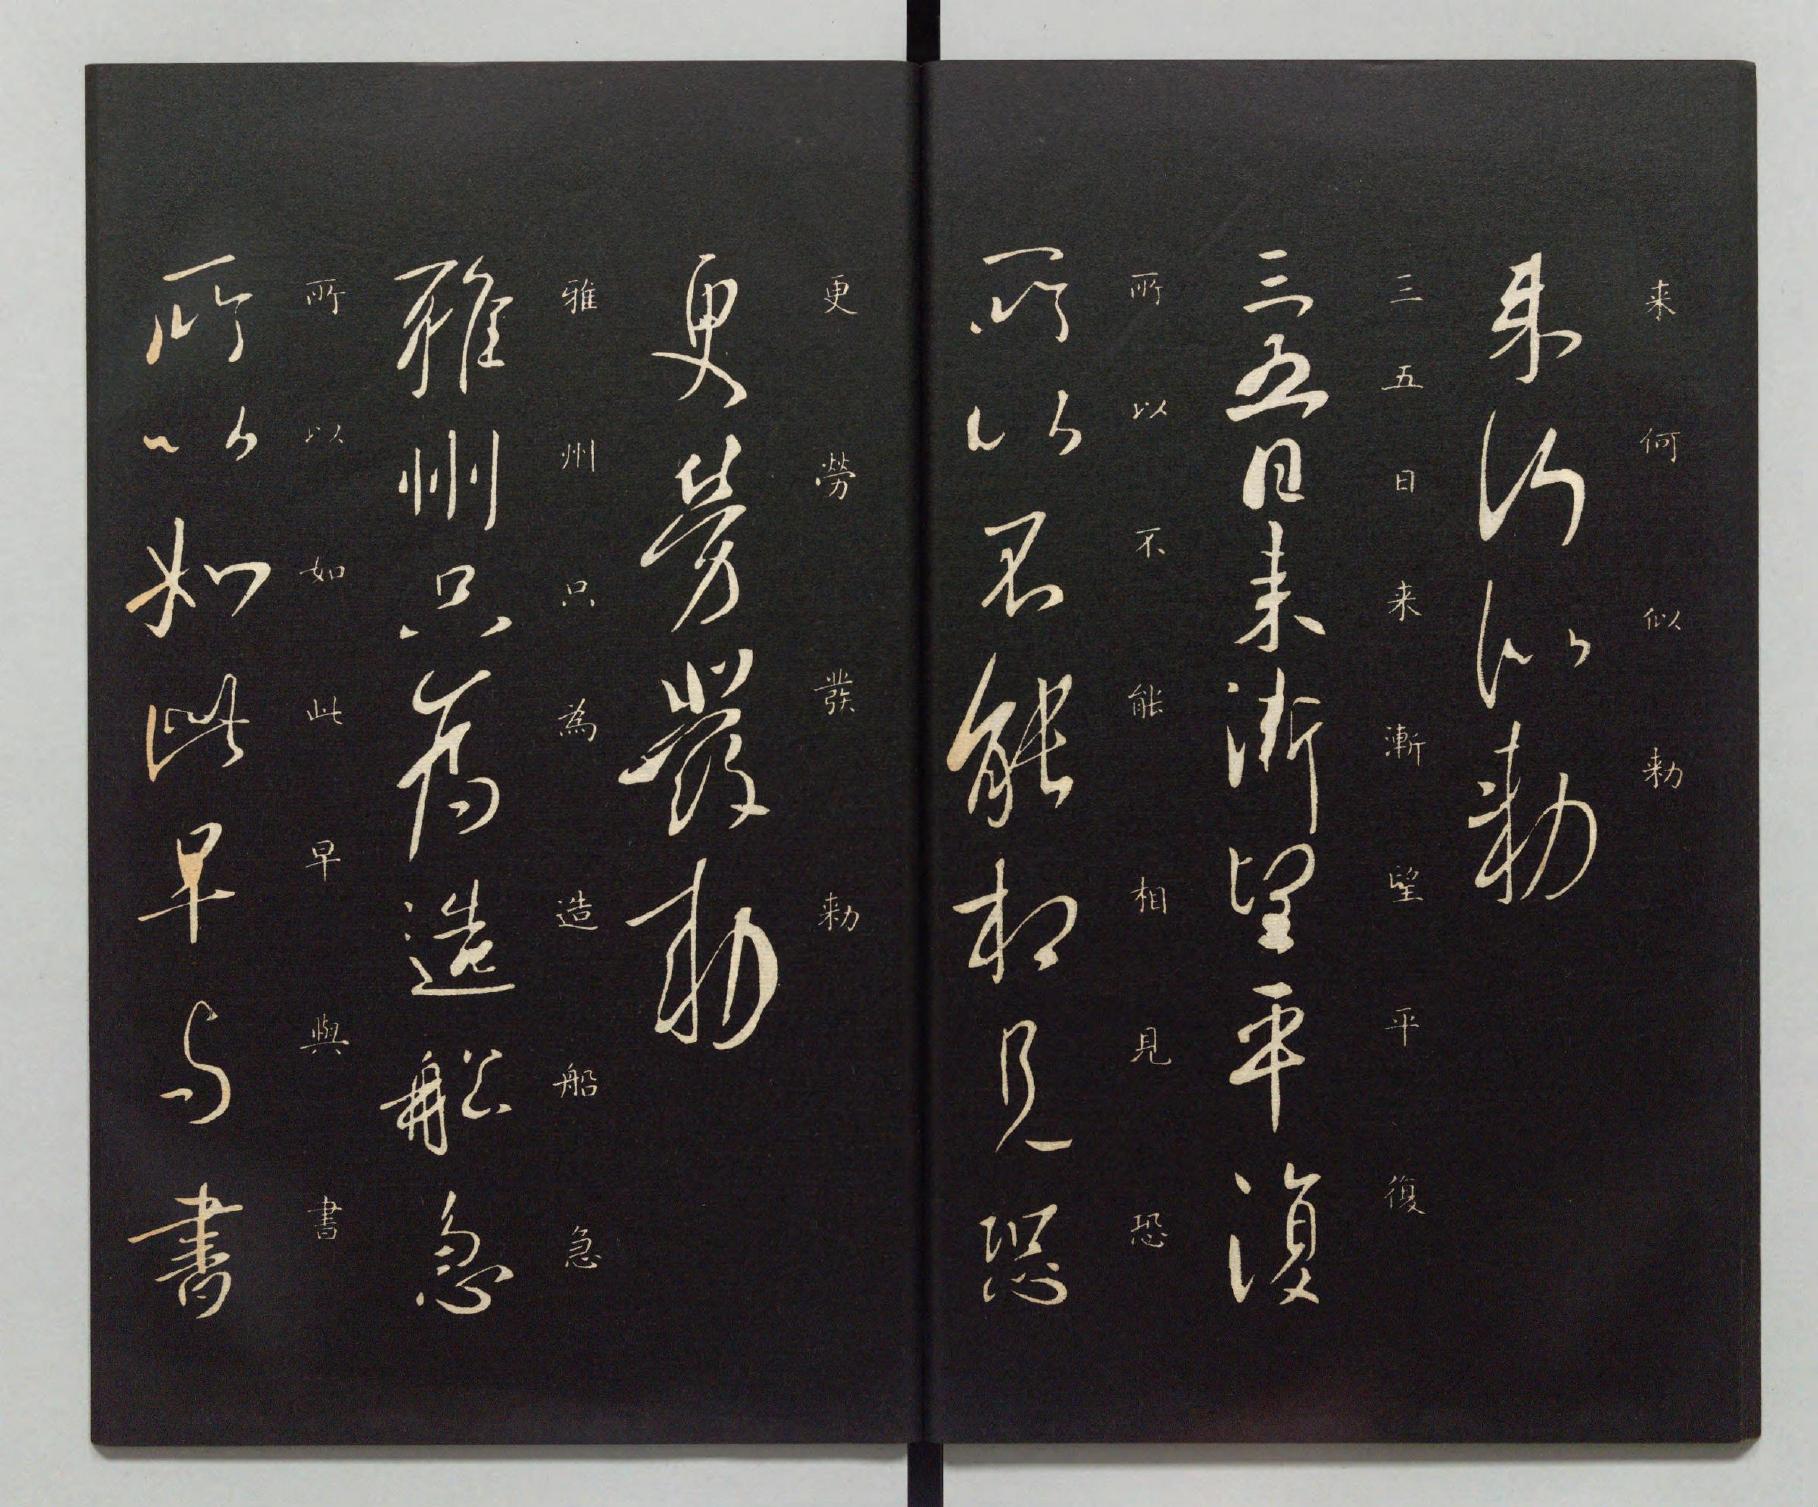 来何似勅
来何似勅
三五日来漸朢平復
三五日来漸朢平復
所以不能相見恐
所以不能相見恐
更勞發勅
更勞發勅
雅州只為造船急
雅州只為造船急
所以如此早與書
所以如此早與書